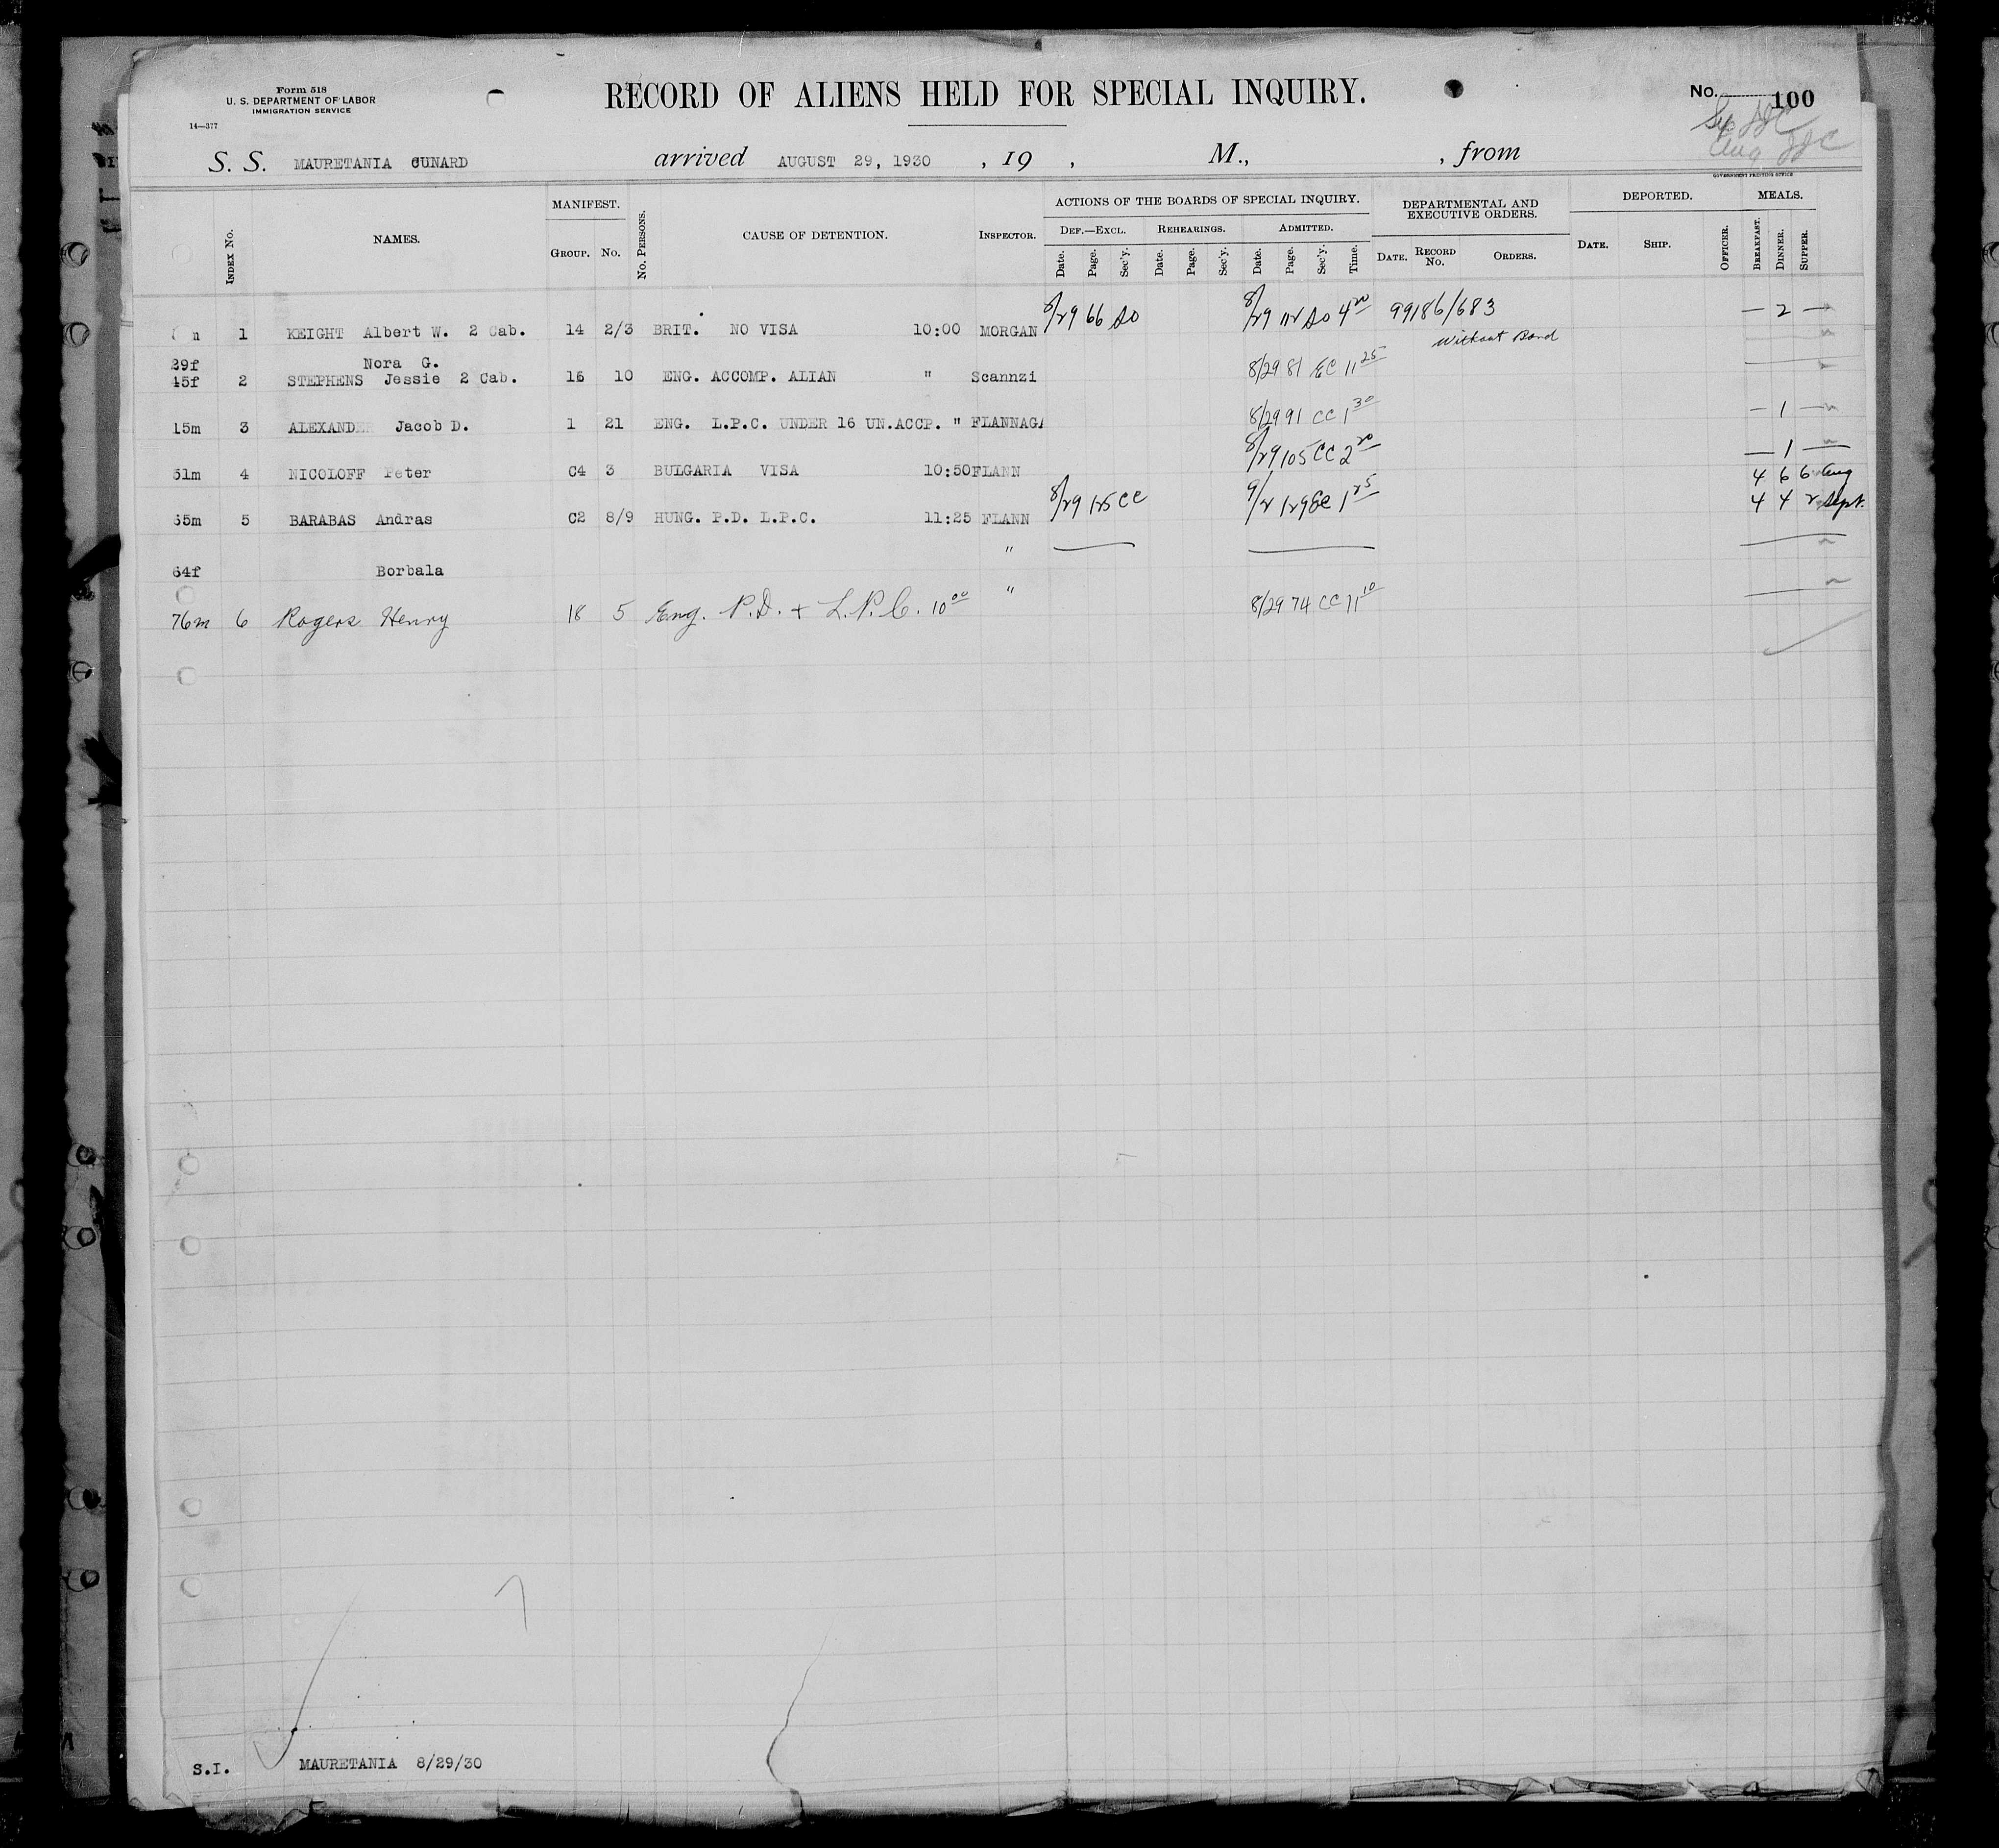 Form 518
U. S. DEPARTMENT OF LABOR
IMMIGRATION SERVICE
14—377
RECORD OF ALIENS HELD FOR SPECIAL INQUIRY.
No. 100
S. S. MAURETANIA CUNARD arrived AUGUST 29, 1930 , 19 , M., , from
Aug
GOVERNMENT PRINTING OFFICE
INDEX No. NAMES. MANIFEST. GROUP. No. No. PERSONS. CAUSE OF DETENTION. INSPECTOR. ACTIONS OF THE BOARDS OF SPECIAL INQUIRY. DEF.—EXCL. Date. Page. Sec'y. REHEARINGS. Date. Page. Sec'y. ADMITTED. Date. Page. Sec'y. Time. DEPARTMENTAL AND EXECUTIVE ORDERS. DATE. RECORD No. ORDERS. DEPORTED. DATE. SHIP. OFFICER. MEALS. BREAKFAST. DINNER. SUPPER.
1 KEIGHT Albert W. 2 Cab. 14 2/3 BRIT. NO VISA 10:00 MORGAN 8/29 66 SO 8/29 112 SO 4 20 99186/683 — 2 —
Without Bond
29f Nora G.
45f 2 STEPHENS Jessie 2 Cab. 10 ENG. ACCOMP. ALIAN " Scannzi 8/29 81 EC 11 25
15m 3 ALEXANDER Jacob D. 1 21 ENG. L.P.C. UNDER 16 UN.ACCP. " FLANNAGA 8/29 91 CC 1 30 — 1 —
51m 4 NICOLOFF Peter C4 3 BULGARIA VISA 10:50 FLANN 8/29 105 CC 2 20 — 1 —
4 6 6 Aug
65m 5 BARABAS Andras C2 8/9 HUNG. P.D. L.P.C. 11:25 FLANN 8/29 125 CC 9/2 129 EC 1 25 4 4 2 Sept.
64f Borbala "
76m 6 Rogers Henry 18 5 Eng. P.D. + L.P.C. 10 00 " 8/29 74 CC 11 10
S.I. MAURETANIA 8/29/30